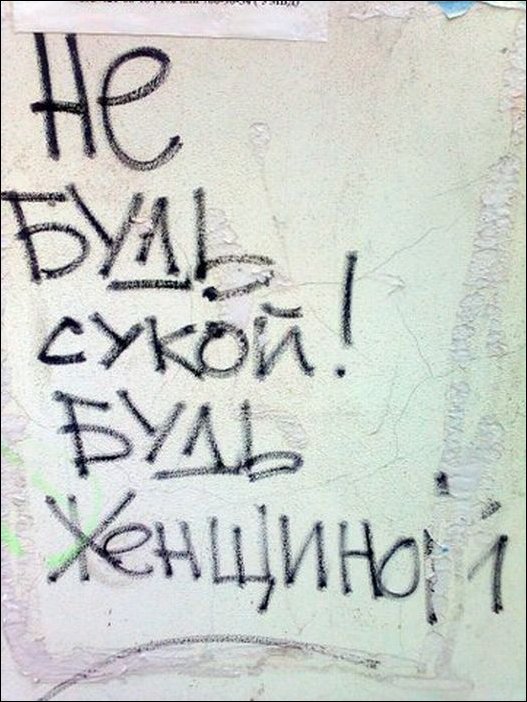 Не
БУДЬ
сукой!
БУДЬ
Женщиной